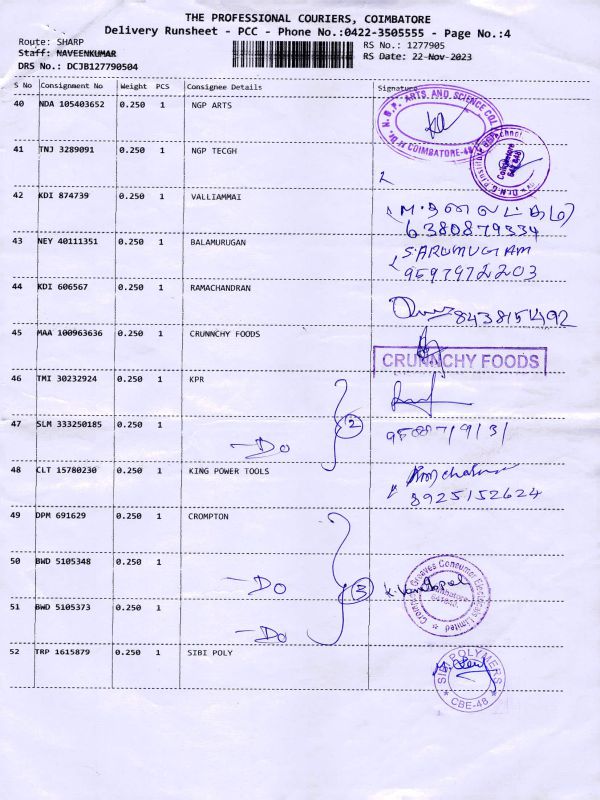 THE PROFESSIONAL COURIERS, COIMBATORE
Delivery Runsheet - PCC - Phone No.:0422-3505555 - Page No.:4
Route: SHARP
RS No.: 1277905
Staff: NAVEENKUMAR
RS Date: 22-Nov-2023
DRS No.: DCJB127790504
S No Consignment No Weight PCS Consignee Details Signature
40 NDA 105403652 0.250 1 NGP ARTS
ARTS AND SCIENCE COIMBATORE-48
41 TNJ 3289091 0.250 1 NGP TECGH
Coimbatore
42 KDI 874739 0.250 1 VALLIAMMAI
6380879334
43 NEY 40111351 0.250 1 BALAMURUGAN
S.ARUMUGAM
9597972203
44 KDI 606567 0.250 1 RAMACHANDRAN
8438151492
45 MAA 100963636 0.250 1 CRUNNCHY FOODS
CRUNNCHY FOODS
46 TMI 30232924 0.250 1 KPR
47 SLM 333250185 0.250 1
-Do 2
48 CLT 15780230 0.250 1 KING POWER TOOLS
8925152624
49 DPM 691629 0.250 1 CROMPTON
50 BWD 5105348 0.250 1
-Do 3
Crompton Greaves Consumer Electricals Limited
51 BWD 5105373 0.250 1
-Do
52 TRP 1615879 0.250 1 SIBI POLY
SIBI POLYMERS
CBE-48